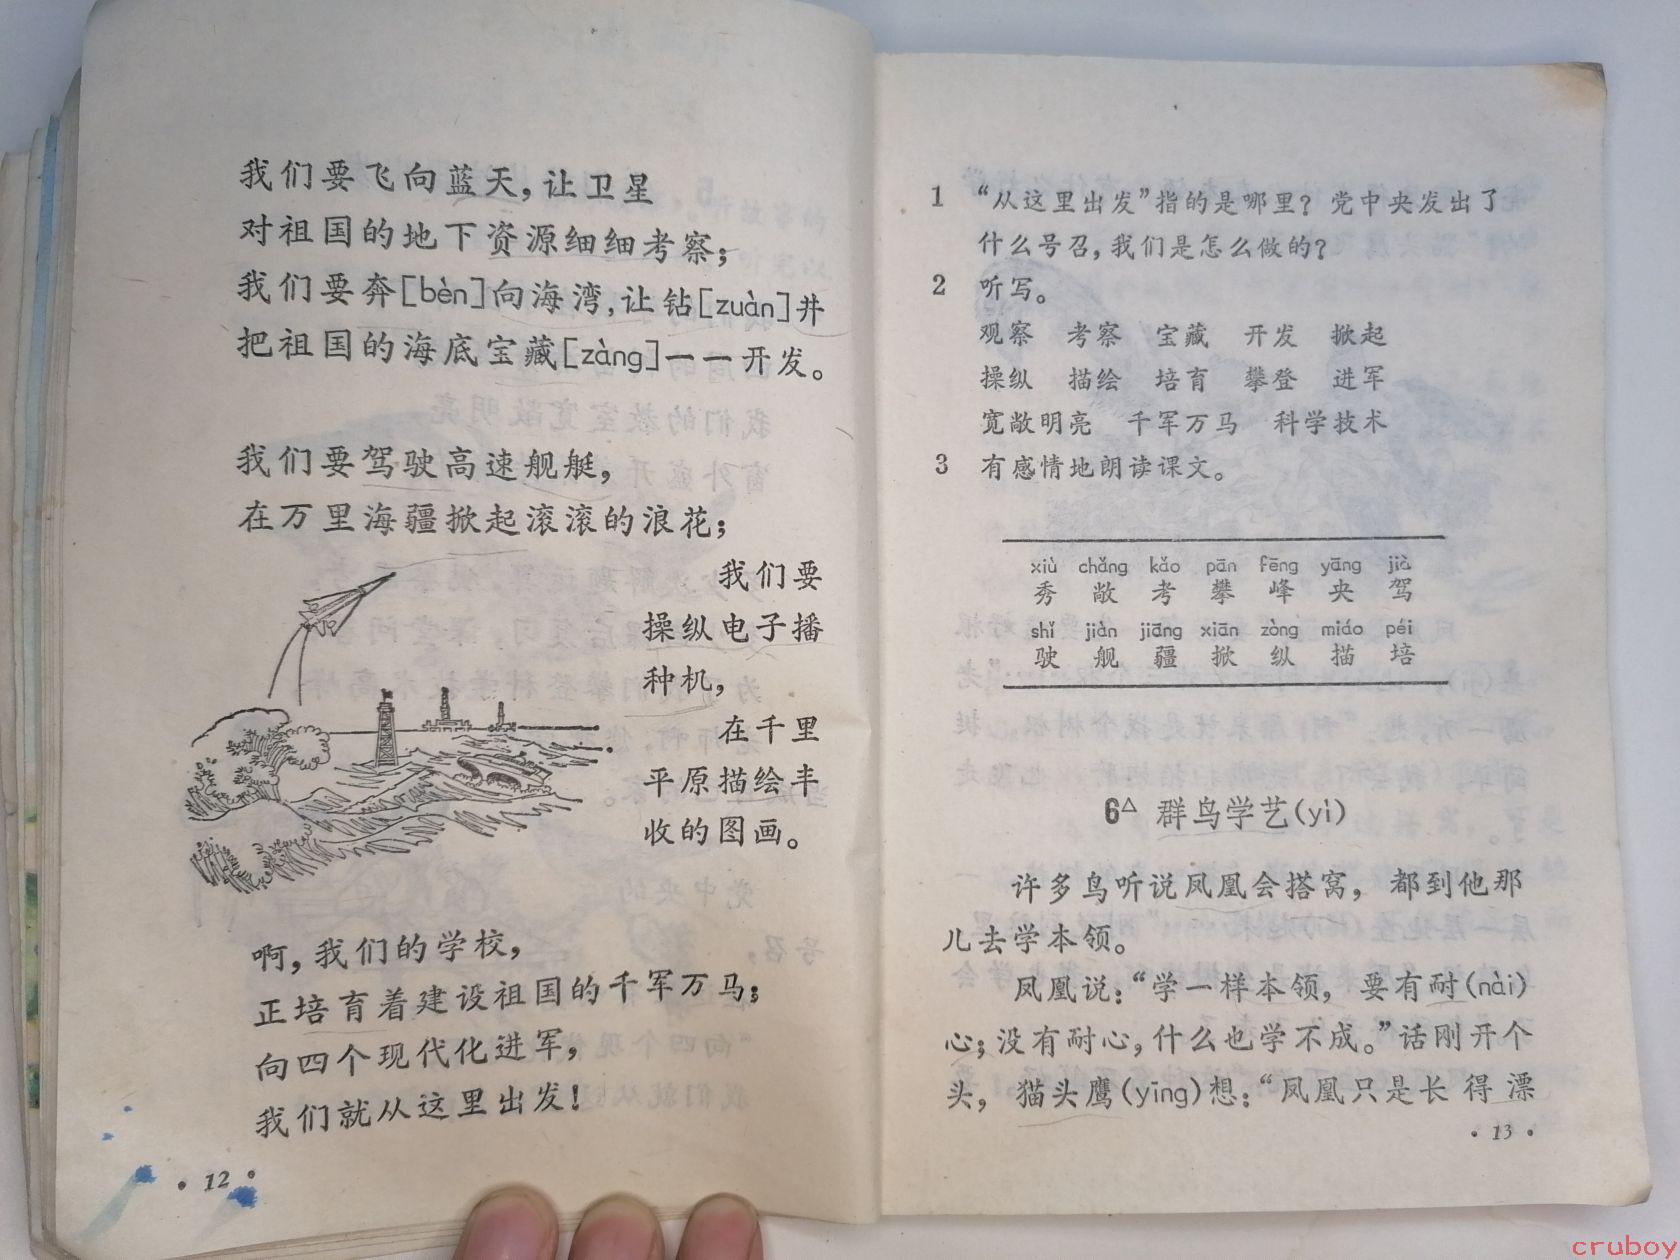 我们要飞向蓝天,让卫星
对祖国的地下资源细细考察;
我们要奔[bèn]向海湾,让钻[zuàn]井
把祖国的海底宝藏[zàng]一一开发。
我们要驾驶高速舰艇,
在万里海疆掀起滚滚的浪花;
我们要
操纵电子播
种机,
在千里
平原描绘丰
收的图画。
啊,我们的学校,
正培育着建设祖国的千军万马;
向四个现代化进军,
我们就从这里出发!
· 12 ·
1 “从这里出发”指的是哪里?党中央发出了
什么号召,我们是怎么做的?
2 听写。
观察 考察 宝藏 开发 掀起
操纵 描绘 培育 攀登 进军
宽敞明亮 千军万马 科学技术
3 有感情地朗读课文。
xiù chǎng kǎo pān fēng yāng jià
秀 敞 考 攀 峰 央 驾
shǐ jiàn jiāng xiān zòng miáo péi
驶 舰 疆 掀 纵 描 培
6△ 群鸟学艺(yì)
许多鸟听说凤凰会搭窝,都到他那
儿去学本领。
凤凰说:“学一样本领,要有耐(nài)
心;没有耐心,什么也学不成。”话刚开个
头,猫头鹰(yīng)想:“凤凰只是长得漂
· 13 ·
cruboy